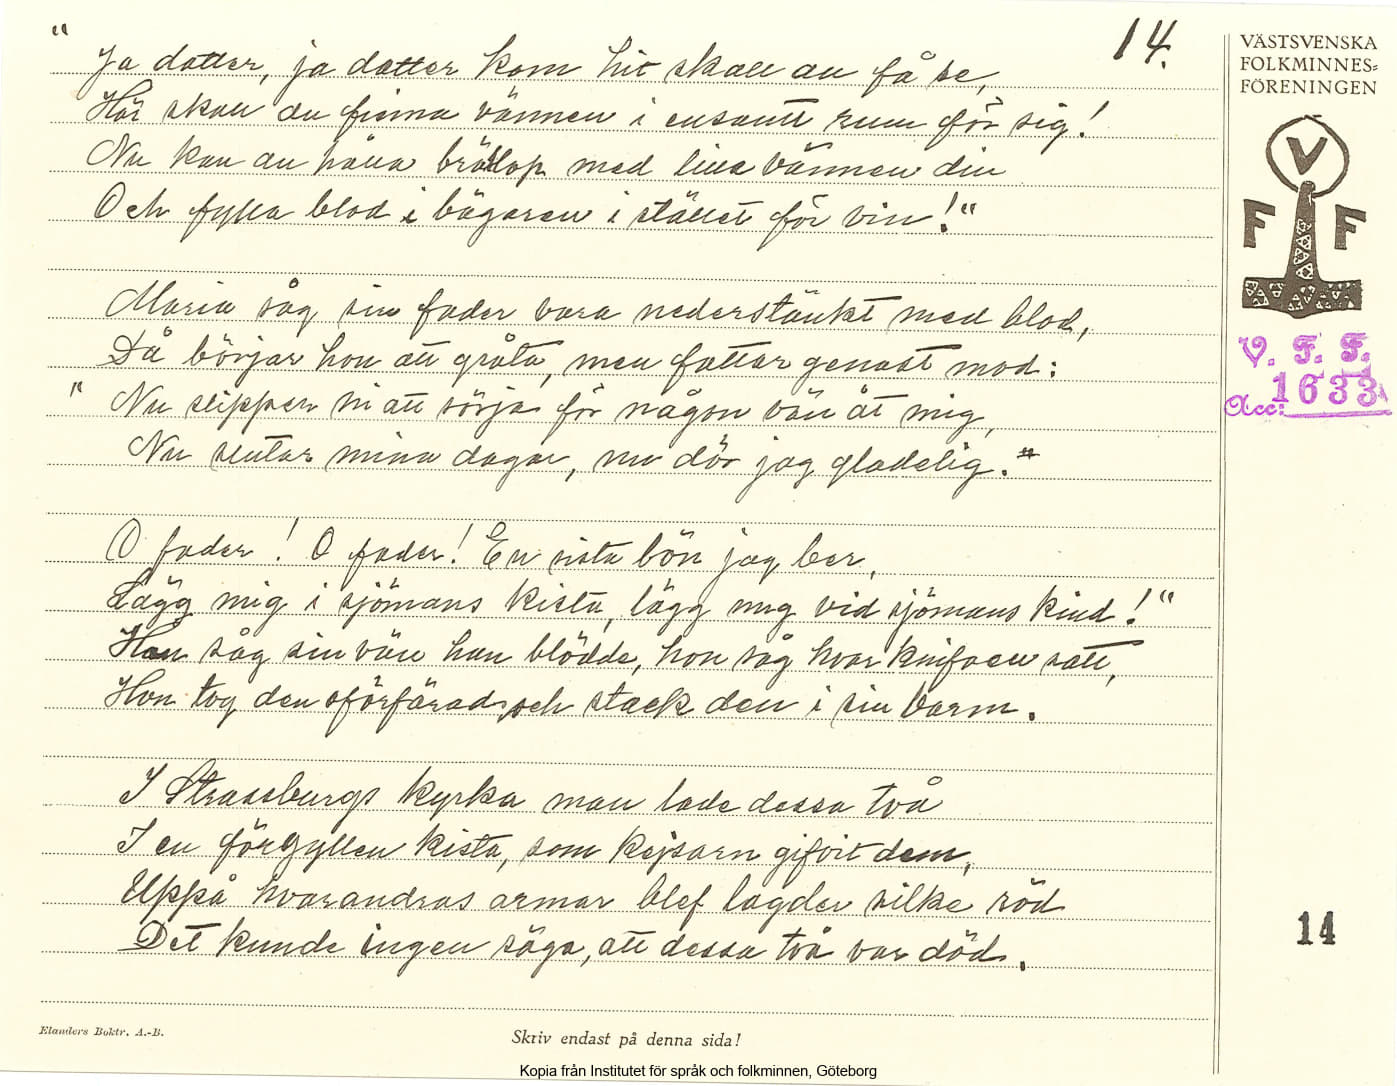 14.
"Ja dotter, ja dotter kom hit skall du få se,
Här skall du finna vännen i ensamt rum för sig!
Nu kan du hålla bröllop med lilla vännen din
Och fylla blod i bägaren i stället för vin!"
Maria såg sin fader vara nederstänkt med blod,
Då börjar hon att gråta, men fattar genast mod:
"Nu slipper ni att sörja för någon vän åt mig,
Nu slutar mina dagar, nu dör jag gladelig."
O fader! O fader! En sista bön jag ber,
Lägg mig i sjömans kista, lägg mig vid sjömans kind!"
Hon såg sin vän han blödde, hon såg hvar knifven satt,
Hon tog den oförfärad och stack den i sin barm.
I Strassburgs kyrka man lade dessa två
I en förgyllen kista, som kejsarn gifvit dem,
Uppå hvarandras armar blef lagder silke röd
Det kunde ingen säga, att dessa två var död.
VÄSTSVENSKA
FOLKMINNES=
FÖRENINGEN
V
F F
V. F. F.
Acc: 1633
14
Elanders Boktr. A.-B.
Skriv endast på denna sida!
Kopia från Institutet för språk och folkminnen, Göteborg